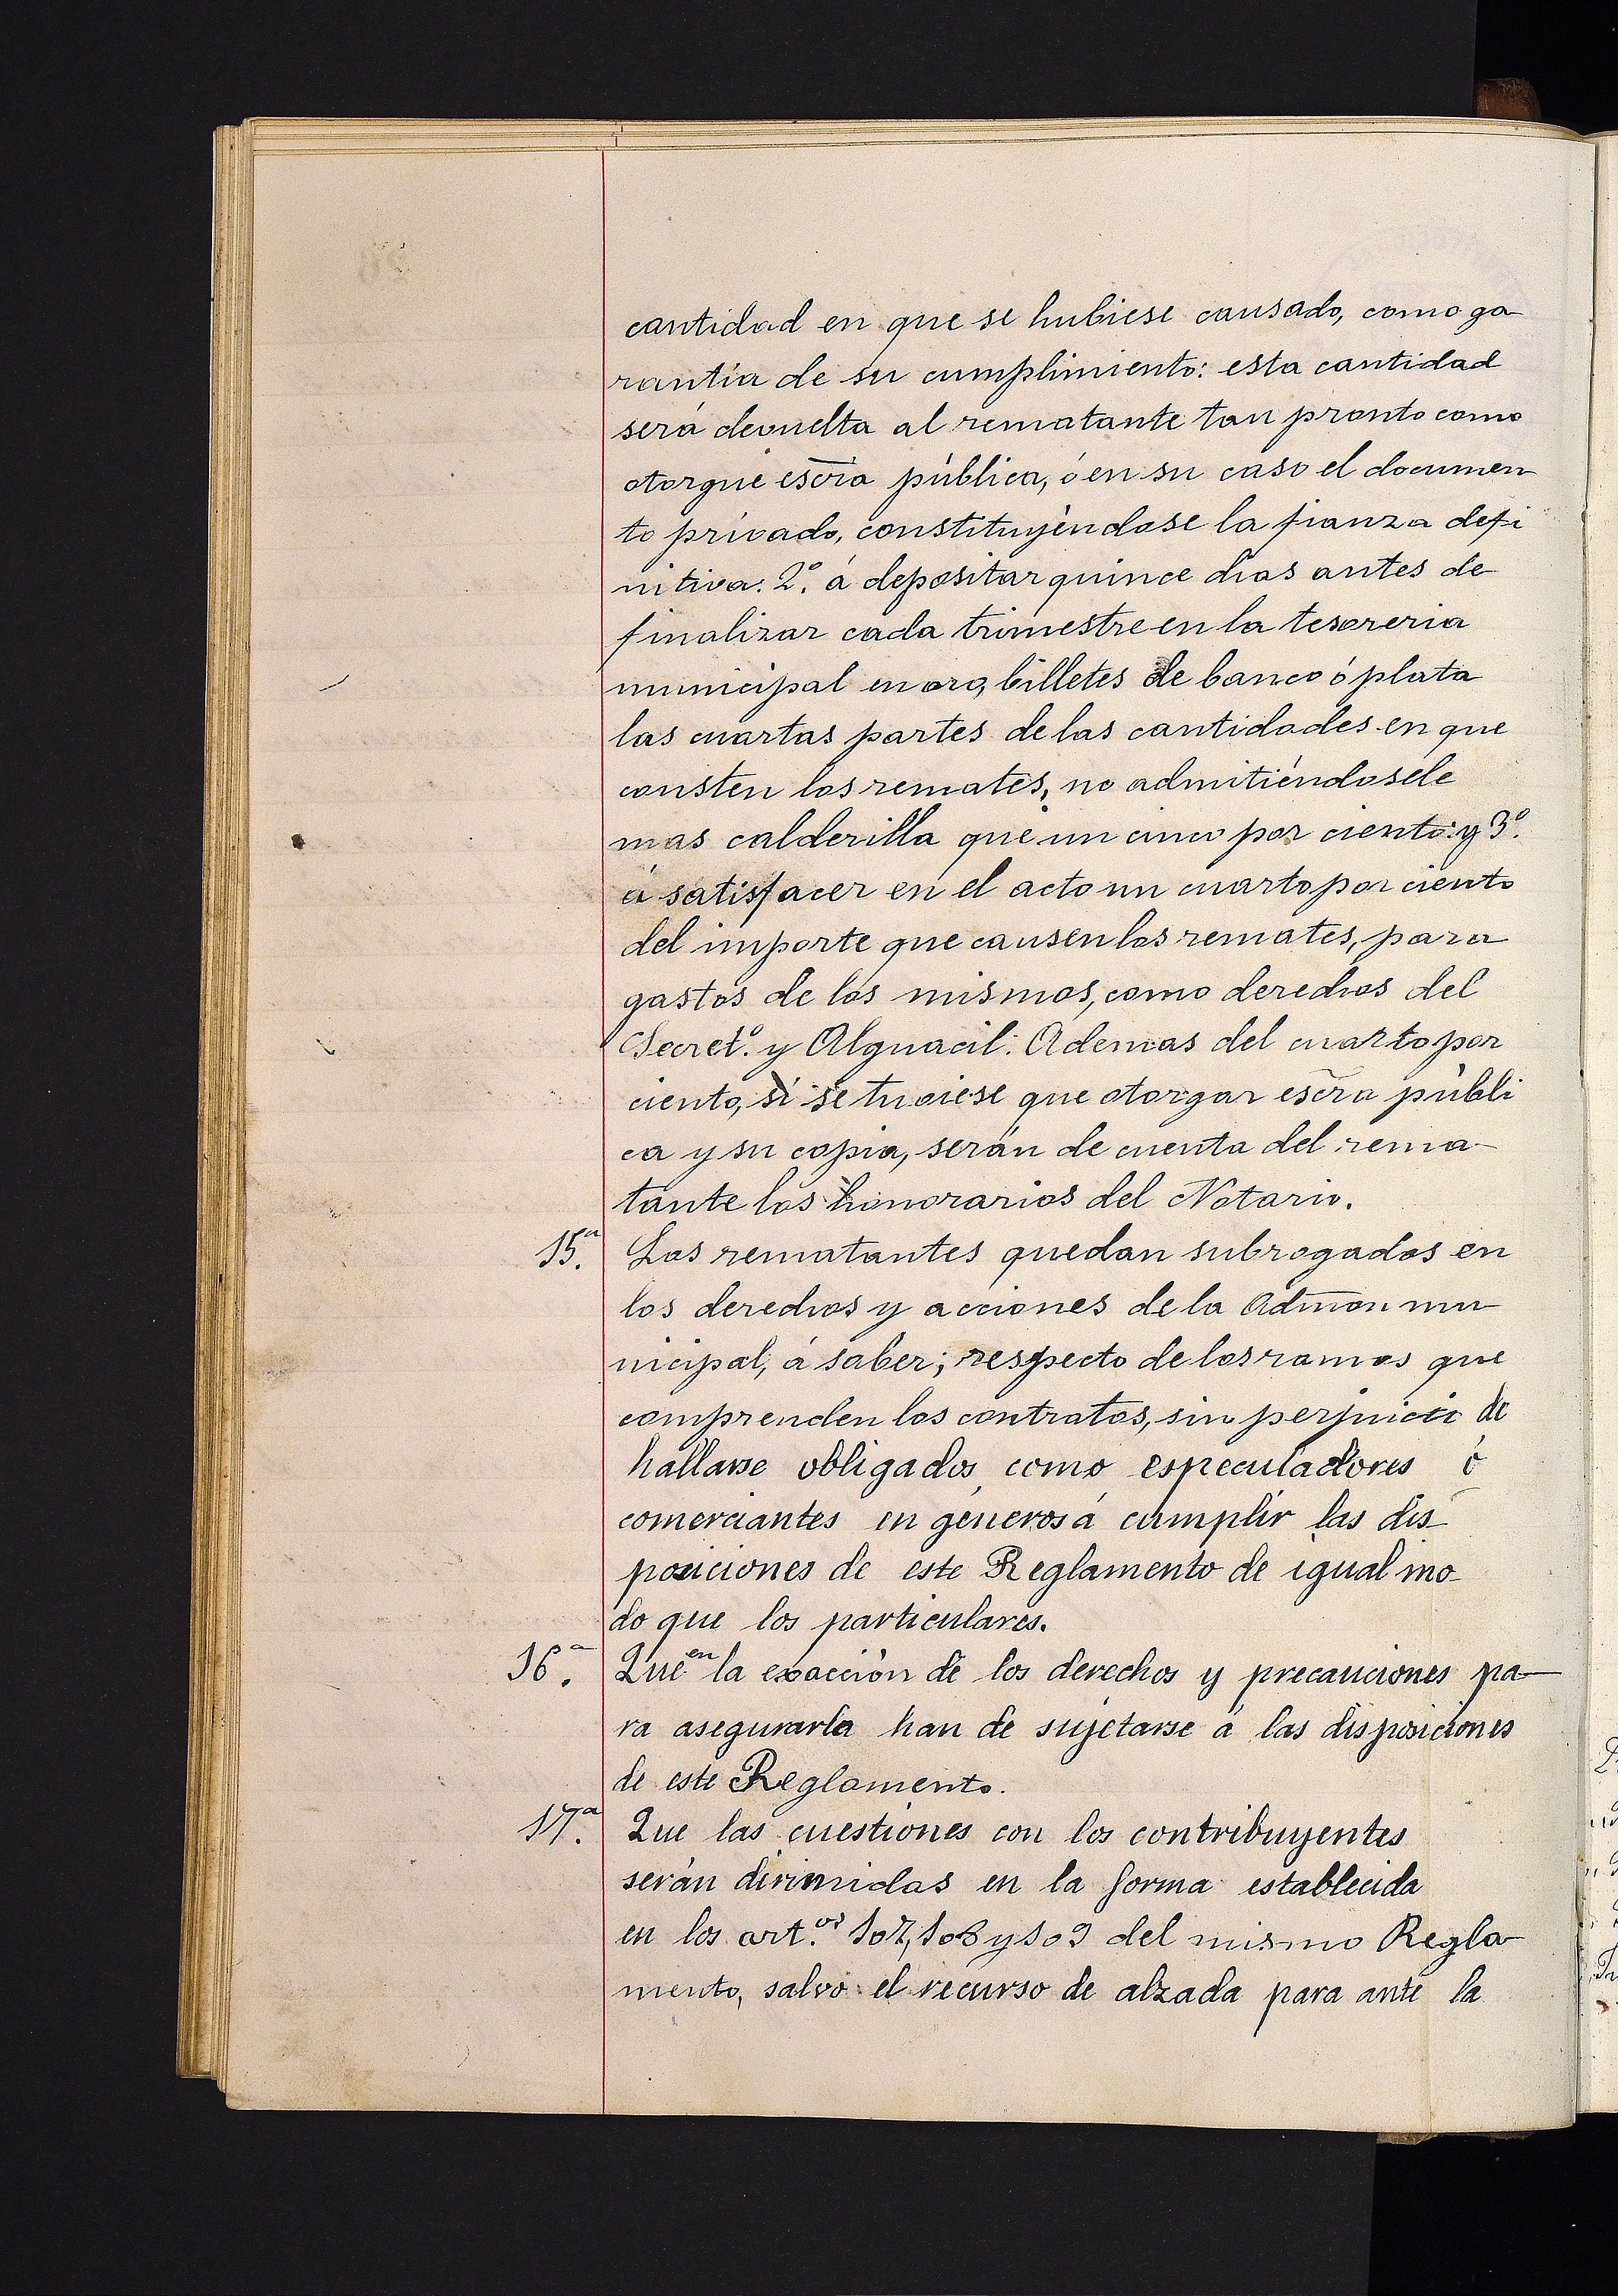 cantidad en que se hubiese causado, como ga
rantía de su cumplimiento: esta cantidad
será devuelta al rematante tan pronto como
otorgue escra pública, ó en su caso el documen
to privado, constituyéndose la fianza defi
nitiva: 2.º á depositar quince dias antes de
finalizar cada trimestre en la tesoreria
municipal en oro, billetes de banco ó plata
las cuartas partes de las cantidades en que
consten los remates, no admitiéndosele
mas calderilla que un cinco por ciento: y 3.º
á satisfacer en el acto un cuarto por ciento
del importe que causen los remates, para
gastos de los mismos, como derechos del
Secret.º y Alguacil. Ademas del cuarto por
ciento, si se tuviese que otorgar escra públi
ca y su copia, serán de cuenta del rema-
tante los honorarios del Notario.
15.ª Los rematantes quedan subrogados en
los derechos y acciones de la Admon mu
nicipal, á saber; respecto de los ramos que
comprenden los contratos, sin perjuicio de
hallarse obligados, como especuladores ó
comerciantes en géneros á cumplir las dis-
posiciones de este Reglamento de igual mo-
do que los particulares.
16.ª Que en la exacción de los derechos y precauciones pa-
ra asegurarla han de sujetarse á las disposiciones
de este Reglamento.
17.ª Que las cuestiones con los contribuyentes
serán dirimidas en la forma establecida
en los art.os 107, 108 y 109 del mismo Regla-
mento, salvo el recurso de alzada para ante la